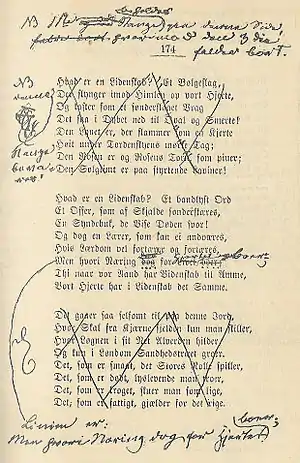 174
Hvad er en Lidenskab? Et Bølgeslag,
Der slynger imod Himlen op vort Hjerte,
Og kyster som et sønderslaget Vrag
Det saa i Dybet ned til Qval og Smerte!
Den Lynet er, der flammer som en Kjerte
Høit under Tordenskyens mørke Tag;
Den Rosen er og Rosens Torn, som piner;
Den Solglimt er paa styrtende Laviner!
Hvad er en Lidenskab? Et bandlyst Ord
Et Offer, som af Skjalde sønderskæres,
En Syndebuk, de Vise Døden svor!
Og dog en Lærer, som kan ei undværes,
Hvis Lærdom vel fortærer og fortæres,
Men hvori Næring dog for
Thi naar vor Aand har Videnskab til Amme,
Vort Hjerte har i Lidenskab det Samme.
Det gaaer saa selsomt til paa denne Jord,
Hvor Skal fra Kjærne sjelden kun man skiller,
Hvor Løgnen i sit Net Alverden hilder
Og kun i Løndom Sandhedsfrøet groer.
Det, som er smaat, det Stores Rolle spiller,
Det, som er dødt, lyslevende man troer,
Det, som er kroget, sluer man som lige,
Det, som er fattigt, gjælder for det rige.
Linien er:
boer,
Men hvori Næring dog for Hjertet